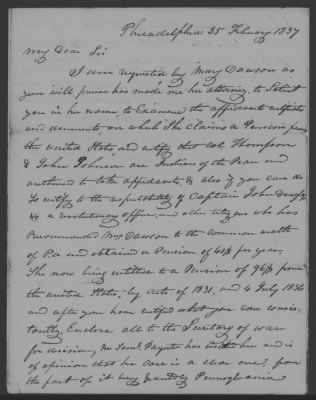 Philadelphia 25 Febuary 1837
My Dear Sir
I am requested by Mary Dawson as
you will perceive has made me her attorney, to Solicit
you in her name, to Examine the affidavits certificates
and documents on which She claims a Pension from
the united States, and certify that Col Thompson
& John Johnson are Justices of the Peace and
authorised to take affidavits, & also if you can do
So certify to the respectability of Captain John
a revolutionary officer, and other citizens who has
Recommended Mrs Dawson to the Common wealth
of Pa. and obtained a Pension of 40$ per year,
She now being entitled to a Pension of 96$ from
the united States, by acts of 1831, and 4 July 1836
and after you have certified what you can consis-
tantly, Enclose all to the Secretary of war
for division, Mr Saml has her and is
of opinion that her case is a clear one, from
the part of it being Pennsylvania